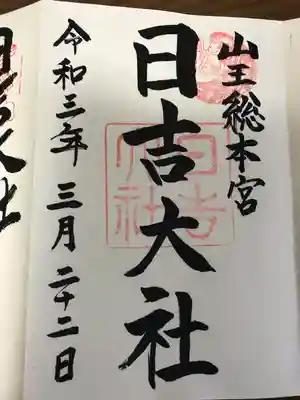 山王総本宮
日吉大社
日吉大社
令和三年 三月 二十二日